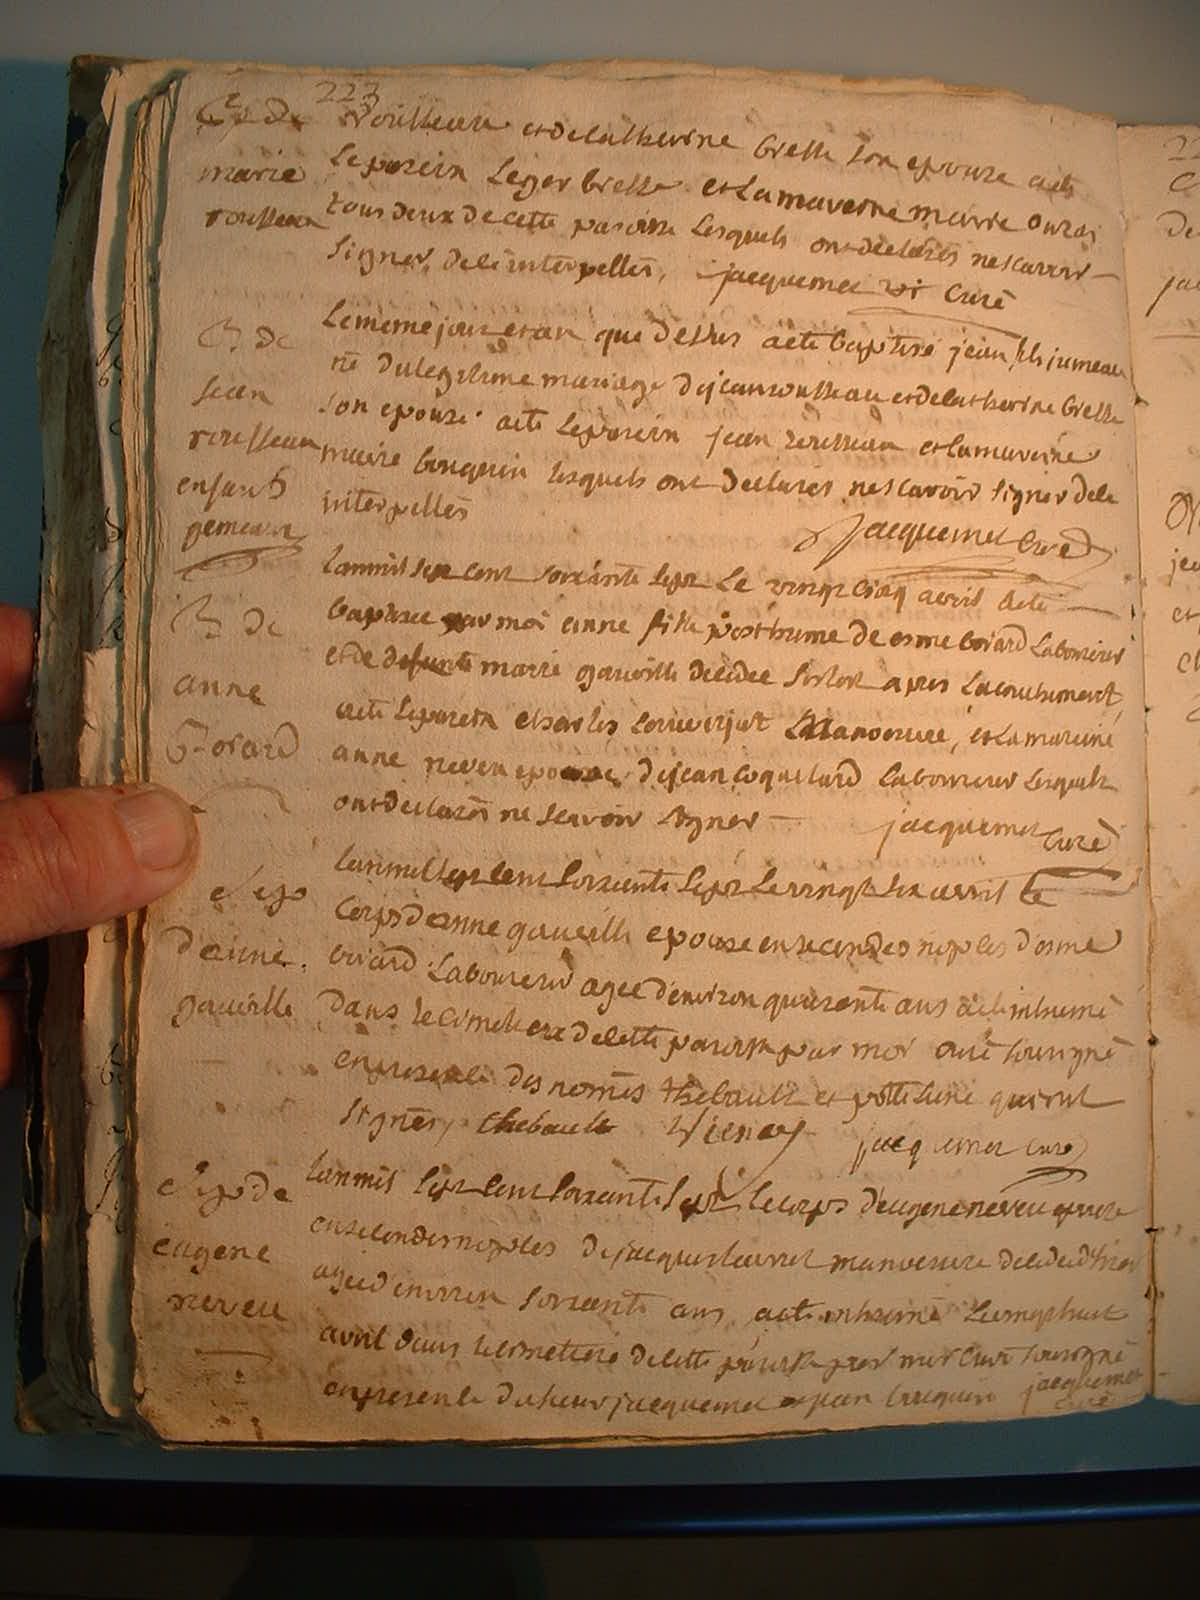 223
B de
marie
rousseau
Rousseau et de catherine brette son epouze a ete
le parein leger brette et la mareine marie
tous deux de cette paroisse lesquels ont declarés ne scavoir
signer, de ce interpellés, jacquemet curé
B de
jean
rousseau
enfants
gemeaux
Le meme jour et an que dessus a eté baptisé jean fils jumeau
né du legitime mariage de jean rousseau et de catherine brette
son epouze a eté le parein jean rousseau et la mareine
marie bouquin lesquels ont declarés ne scavoir signer de ce
interpellés
jacquemet curé
B de
anne
Bovard
L'an mil sept cent soixante sept le vingt cinq avril a eté
baptisee par moi anne fille posthume de esme bovard laboureur
et de defunte marie gaueille decedee sitot apres l'acouchement,
a eté le parein charles manoeuvre, et la mareine
anne neveu epouze de jean coquelard laboureur lesquels
ont declarés ne scavoir signer jacquemet curé
Sep
d'anne
gaueille
L'an mil sept cent soixante sept le vingt six avril le
corps d'anne gaueille epouse en secondes nopces d'esme
bovard laboureur agee d'environ quarente ans a eté inhumé
dans le cimetiere de cette paroisse par moi curé sousigné
en presence des només thebault et qui ont
signés, thebault jacquemet curé
Sep de
eugene
neveu
L'an mil sept cent soixante sept le corps d'eugene neveu epouze
en secondes nopces de jacques manoeuvre decedee d'hier
agee d'environ soixante ans, a eté inhumé le vingt huit
avril dans le cimetiere de cette paroisse par moi curé soussigné
en presence du sieur jacquemet et jean bouquin jacquemet
curé